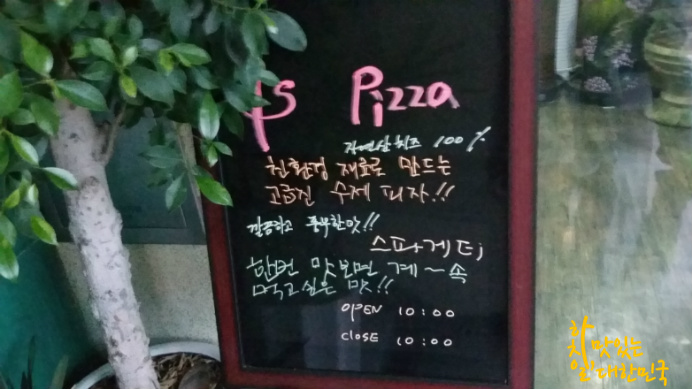 Pizza
자연산 치즈 100%
친환경 재료로 만드는
고급진 수제 피자!!
깔끔하고 풍부한맛!!
스파게티
한번 맛보면 계~속
먹고싶은 맛!!
OPEN 10:00
CLOSE 10:00
참 맛있는
대한민국